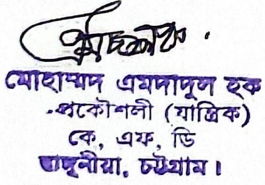 মোহাম্মদ এমদাদুল হক
প্রকৌশলী (যান্ত্রিক)
কে, এফ, ডি
রাঙ্গুনীয়া, চট্টগ্রাম।